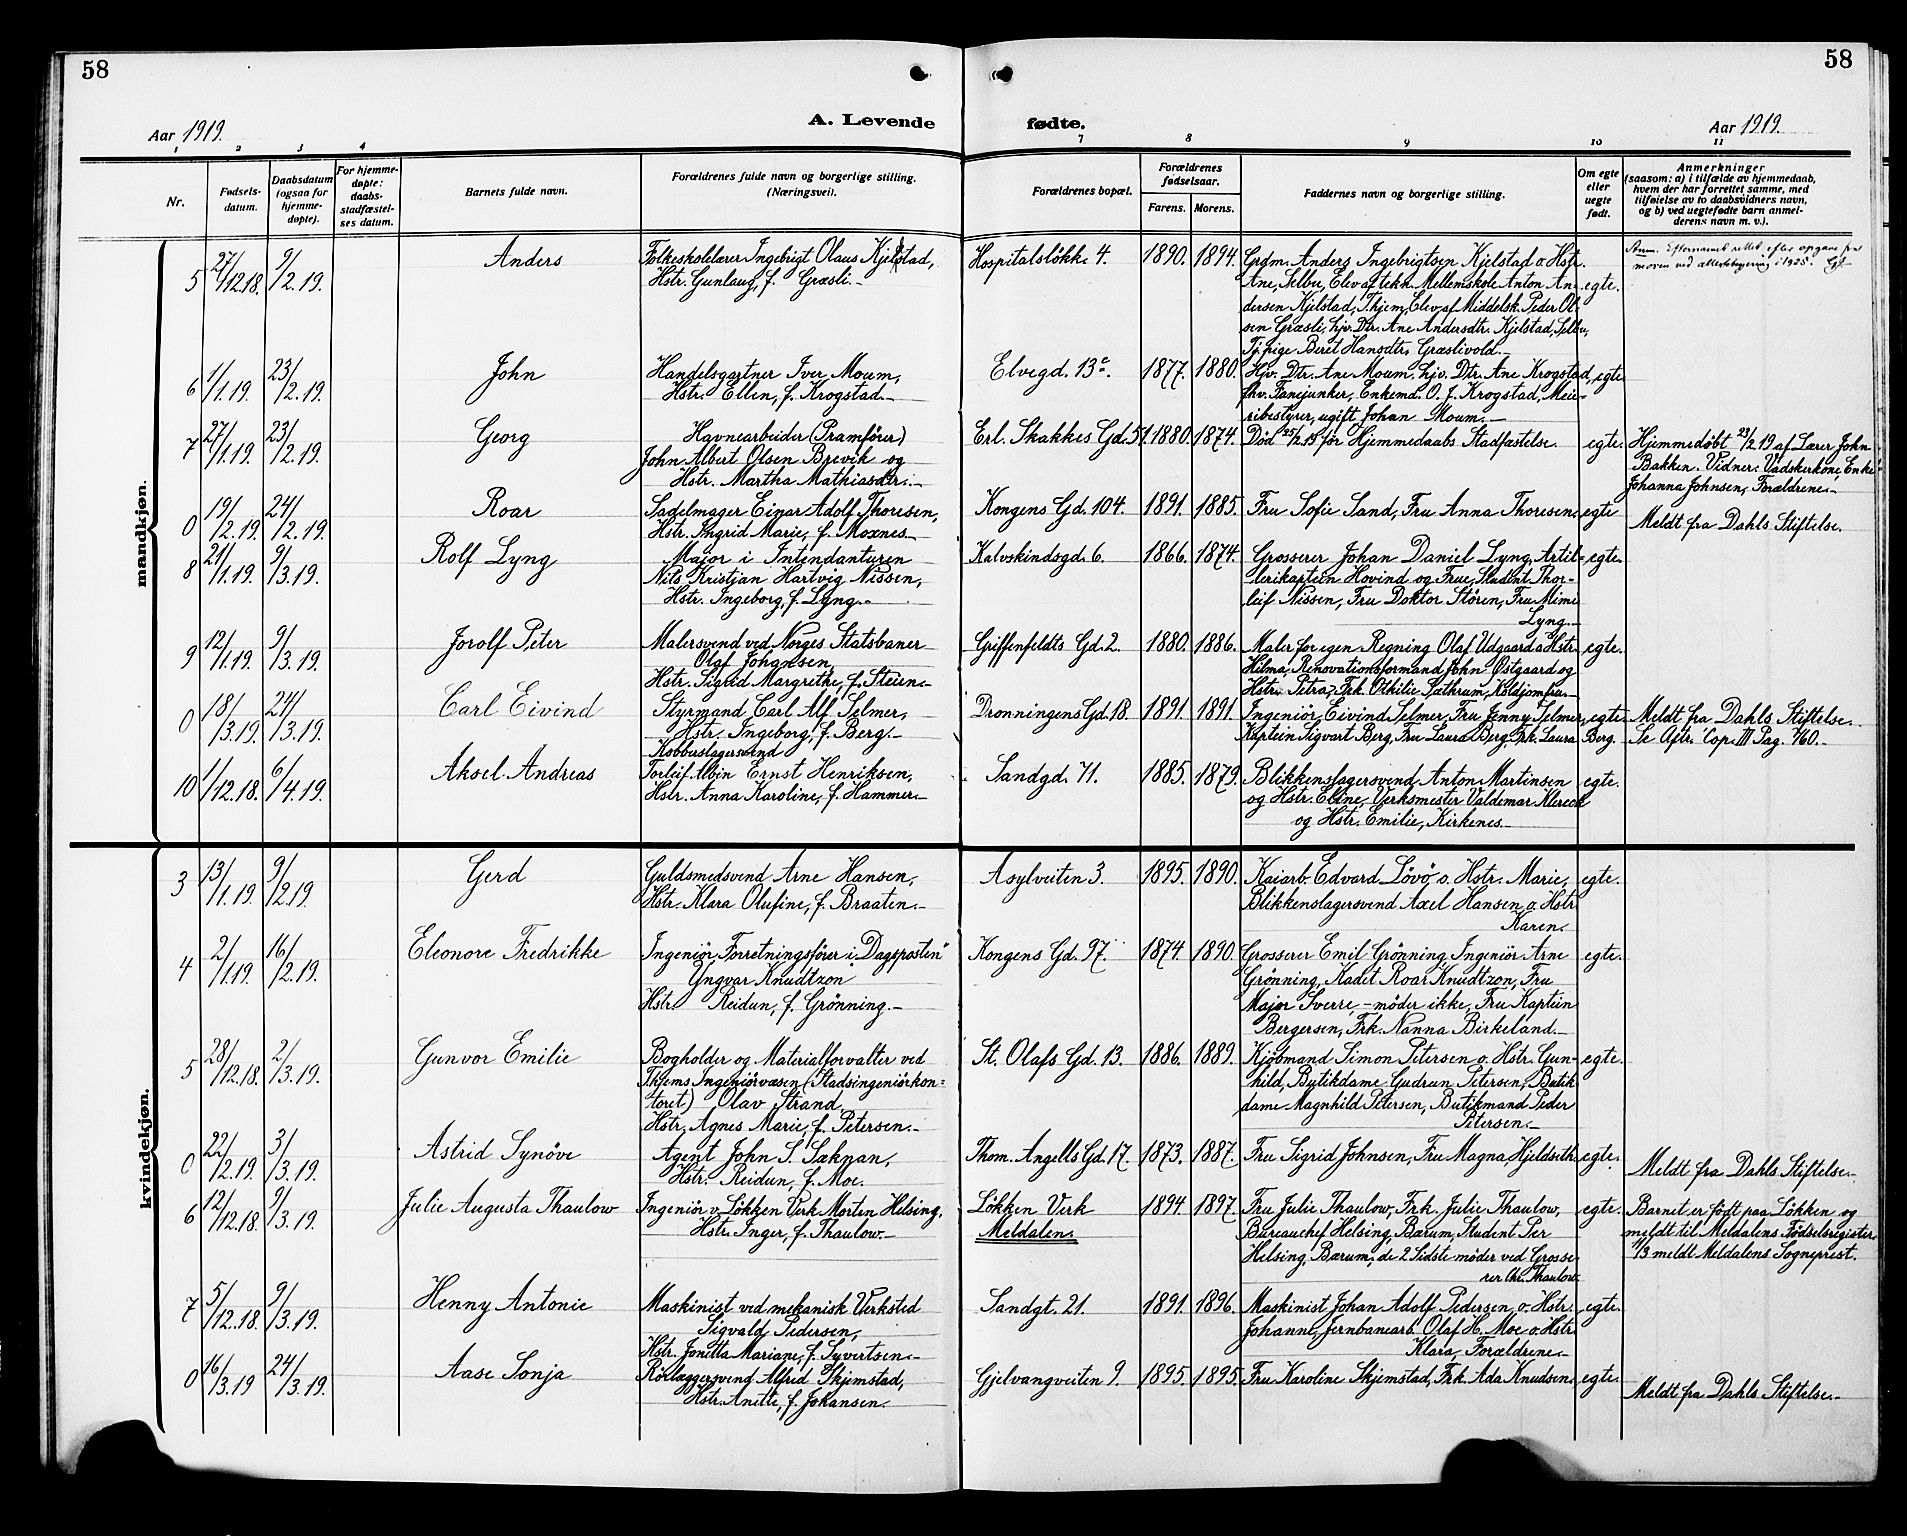 58
58
A. Levende
fødte.
Aar 1919.
Aar 1919.
1 2 3 4
7 8 9 10 11
Nr.
Fødsels-
datum.
Daabsdatum
(ogsaa for
hjemme-
døpte).
For hjemme-
døpte:
daabs-
stadfæstel-
ses datum.
Barnets fulde navn.
Forældrenes fulde navn og borgerlige stilling.
(Næringsvei).
Forældrenes bopæl.
Forældrenes
fødselsaar.
Farens. Morens.
Faddernes navn og borgerlige stilling.
Om egte
eller
uegte
født.
Anmerkninger
(saasom: a) i tilfælde av hjemmedaab,
hvem der har forrettet samme, med
tilføielse av to daabsvidners navn,
og b) ved uegtefødte barn anmel-
derens navn m. v.).
mandkjøn.
5 27/12.18. 9/2.19. Anders
Folkeskolelærer Ingebrigt Olaus Kjelstad,
Hstr. Gunlaug, f. Græsli.-
Hospitalsløkk. 4. 1890. 1894.
Grdm. Anders Ingebrigtsen Kjelstad o. Hstr.
Ane, Selbu, Elev af tekn. Mellemskole Anton An-
dersen Kjelstad, Thjem, Elev af Middelsk. Peder Ol-
sen Græsli, hjv. Dtr. Ane Andersdtr. Kjelstad, Selbu,
Tj. pige Beret Hansdtr. Græslivold.-
egte.
Anm. Efternavnet rettet efter opgave fra
moren ved attestutstedelse i 1925.
6 1/1.19. 23/2.19. John
Handelsgartner Iver Moum,
Hstr. Ellen, f. Krogstad.-
Elvegd. 13c. 1877. 1880.
Hjv. Dtr. Ane Moum, hjv. Dtr. Ane Krogstad,
fhv. Fanejunker, Enkemd. O. J. Krogstad, Mei-
eribestyrer, ugift Johan Moum.-
egte
7 27/1.19. 23/2.19. Georg
Havnearbeider (Pramfører)
John Albert Olsen Brevik og
Hstr. Martha Mathiasdtr.-
Erl. Skakkes Gd. 51. 1880. 1874.
Død 25/2 19 før Hjemmedaabs Stadfæstelse.
egte.
Hjemmedøbt 23/2 19 af Lærer John
Bakken. Vidner: Vadskerkone, Enke
Johanna Johnsen, Forældrene.-
0 19/2.19. 24/2.19. Roar
Sadelmager Einar Adolf Thoresen,
Hstr. Ingrid Marie, f. Moxnes.-
Kongens Gd. 104. 1891. 1885.
Fru Sofie Sand, Fru Anna Thoresen.
egte
Meldt fra Dahls Stiftelse.
8 21/1.19. 9/3.19. Rolf Lyng
Major i Intendanturen
Nils Kristjan Hartvig Nissen,
Hstr. Ingeborg, f. Lyng.-
Kalvskindsgd. 6. 1866. 1874.
Grosserer Johan Daniel Lyng, Artil-
lerikaptein Hovind og Frue, Student Thor-
leif Nissen, Fru Doktor Stören, Fru Mimi
Lyng.-
egte.
9 12/1.19. 9/3.19. Jorolf Peter
Malersvend ved Norges Statsbaner
Olaf Johansen,
Hstr. Sigrid Margrethe, f. Steien.-
Griffenfeldts Gd. 2. 1880. 1886.
Maler for egen Regning Olaf Udgaard o. Hstr.
Hilma, Renovationsformand John Østgaard og
Hstr. Petra, Frk. Othilie Sæthrum, Koldjomfru.-
egte.
0 18/3.19. 24/3.19. Carl Eivind
Styrmand Carl Alf Selmer,
Hstr. Ingeborg, f. Berg.-
Dronningens Gd. 18. 1891. 1891.
Ingeniör Eivind Selmer, Fru Jenny Selmer,
Kaptein Sigvart Berg, Fru Laura Berg, Frk. Laura Berg.
egte.
Meldt fra Dahls Stiftelse.
Se Aftr. Cop. III Pag. 460.-
10 1/12.18. 6/4.19. Aksel Andreas
Kobberslagersvend
Torleif Albin Ernst Henriksen,
Hstr. Anna Karoline, f. Hammer.-
Sandgd. 71. 1885. 1879.
Blikkenslagersvend Anton Martinsen
og Hstr. Elene, Verksmester Valdemar Klereck
og Hstr. Emilie, Kirkenes.-
egte.
kvindekjøn.
3 13/1.19. 9/2.19 Gerd
Guldsmedsvend Arne Hansen,
Hstr. Klara Olufine, f. Braaten.-
Asylveiten 3. 1895. 1890.
Kaiarb. Edvard Lövö o. Hstr. Marie,
Blikkenslagersvend Axel Hansen o. Hstr.
Karen.
egte.
4 2/1.19. 16/2.19. Eleonore Fredrikke
Ingeniör, Forretningsförer i „Dagsposten"
Yngvar Knudtzon
Hstr. Reidun, f. Grönning.-
Kongens Gd. 97. 1874. 1890.
Grosserer Emil Grönning, Ingeniör Arne
Grönning, Kadet Roar Knudtzon, Fru
Major Sverre, - möder ikke, Fru Kaptein
Bergersen, Frk. Nanna Birkeland.-
egte.
5 28/12.18. 2/3.19. Gunvor Emilie
Bogholder og Materialforvalter ved
Thjems Ingeniörvæsen (Stadsingeniörkon-
toret) Olav Strand,
Hstr. Agnes Marie, f. Petersen.-
St. Olafs Gd. 13. 1886. 1889.
Kjöbmand Simon Petersen o. Hstr. Gun-
hild, Butikdame Gudrun Petersen, Butik
dame Magnhild Petersen, Butikmand Peder
Petersen.-
egte.
0 22/2.19. 3/3.19. Astrid Synöve
Agent John S. Saknan,
Hstr. Reidun, f. Moe.
Thom. Angells Gd. 17. 1873. 1887.
Fru Sigrid Johnsen, Fru Magna Hjeldseth.
egte.
Meldt fra Dahls Stiftelse.-
6 12/12.18. 9/3.19. Julie Augusta Thaulow
Ingeniör v. Løkken Verk Morten Helsing,
Hstr. Inger, f. Thaulow.-
Løkken Verk
Meldalen.
1894. 1897.
Fru Julie Thaulow, Frk. Julie Thaulow,
Bureauchef Helsing, Bærum, Student Per
Helsing, Bærum, de 2 Sidste möder ved Grosse-
rer Chr. Thaulow.
egte.
Barnet er födt paa Løkken og
meldt til Meldalens Födselsregister
11/3 meldt Meldalens Sogneprest.
7 5/12.18. 9/3.19. Henny Antonie
Maskinist ved mekanisk Verksted
Sigvald Pedersen,
Hstr. Jonetta Mariane, f. Syvertsen.-
Sandgt. 21. 1891. 1896.
Maskinist Johan Adolf Pedersen o. Hstr.
Johanne, Jernbanearb. Olaf H. Moe o. Hstr.
Klara, Forældrene.-
egte.
0 16/3.19 24/3.19. Aase Sonja
Rörlæggersvend Alfrid Skjemstad,
Hstr. Anette, f. Johansen.
Gjelvangveiten 9. 1895. 1895.
Fru Karoline Skjemstad, Frk. Ada Knudsen.
egte.
Meldt fra Dahls Stiftelse.-